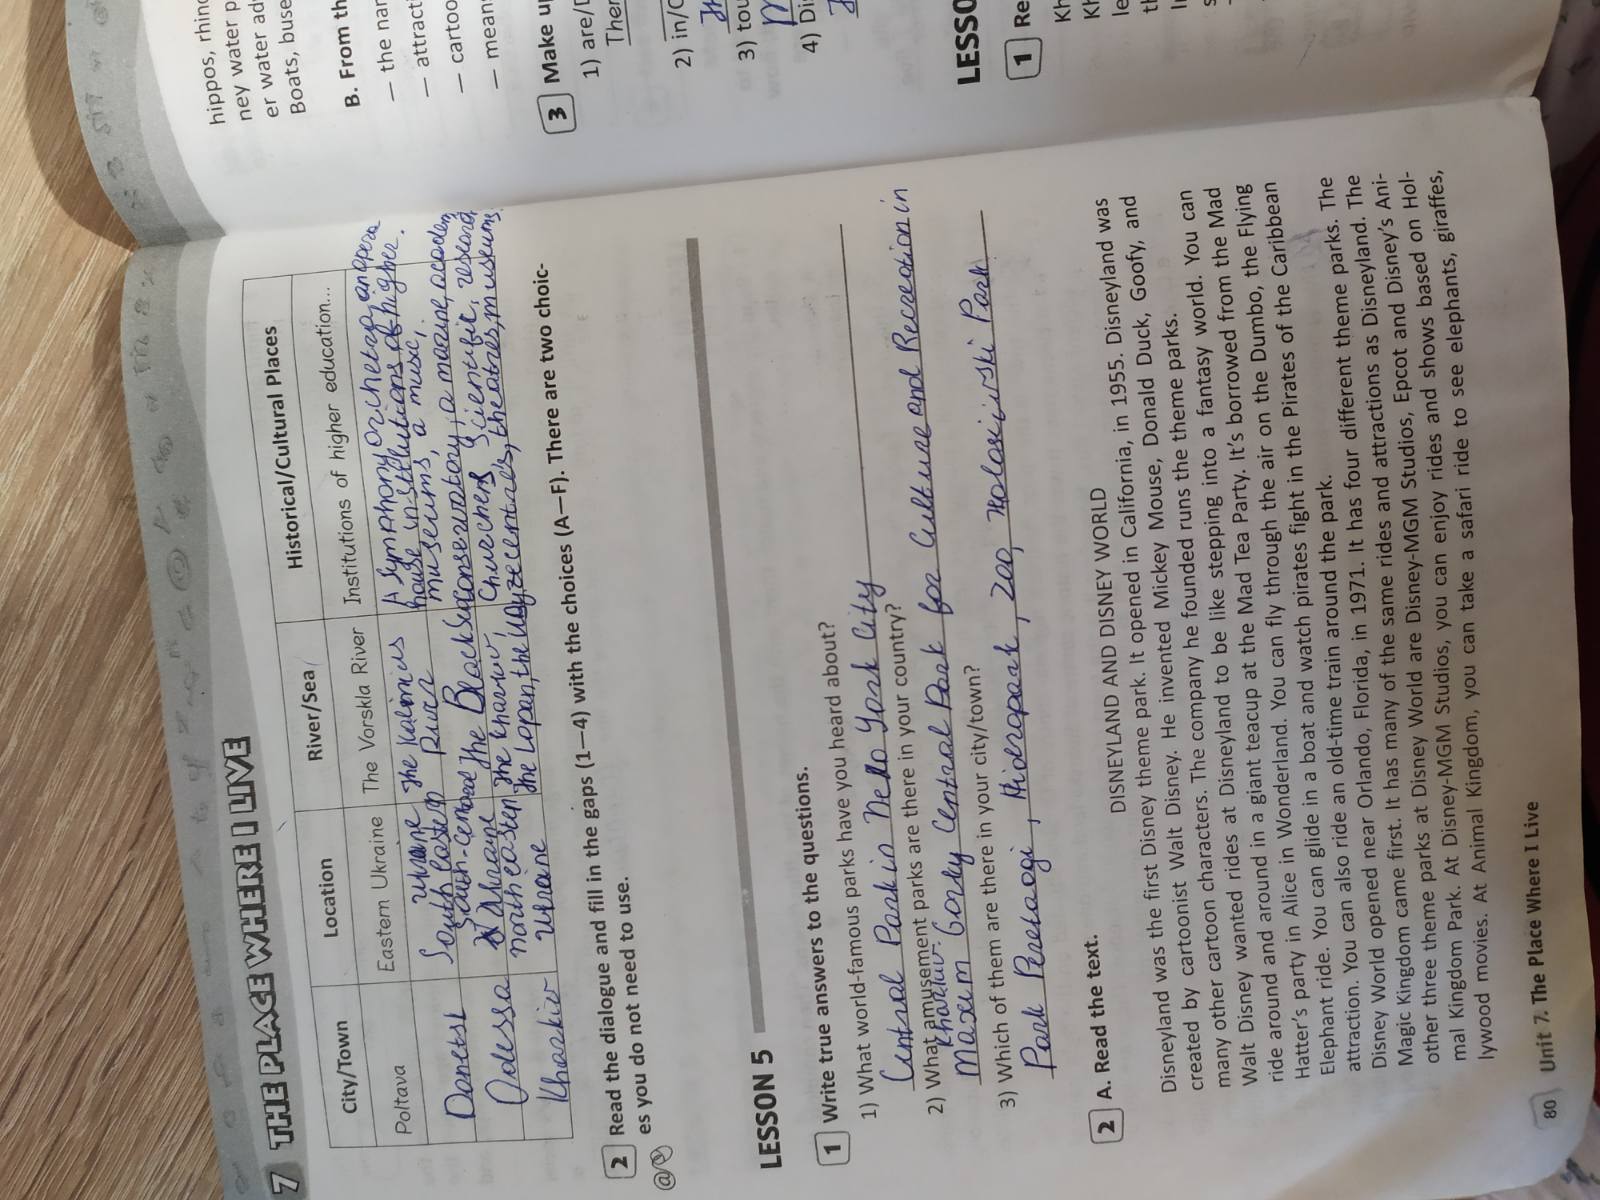 7 THE PLACE WHERE I LIVE
City/Town Location River/Sea Historical/Cultural Places
Poltava Eastern Ukraine The Vorskla River Institutions of higher education...
Donetsk South eastern The Kalmius River A symphony orchetra, an opera house institutions of higher.
museums, a music,
Odessa Ukraine The Black sea conservatory, a marine, academ
Kharkiv north easten the Kharkiv, Churchens, Scientific, research
the Lopan, the Udy recentrales, theatres, museums,
2 Read the dialogue and fill in the gaps (1—4) with the choices (A—F). There are two choic-
es you do not need to use.
LESSON 5
1 Write true answers to the questions.
1) What world-famous parks have you heard about?
Central Park in New York City
2) What amusement parks are there in your country?
Kharkiv.
Maxim Gorky Central Park for Culture and Recreation in
3) Which of them are there in your city/town?
Park Peremogi, Hidropark, Zoo, Holosiivski Park
2 A. Read the text.
DISNEYLAND AND DISNEY WORLD
Disneyland was the first Disney theme park. It opened in California, in 1955. Disneyland was
created by cartoonist Walt Disney. He invented Mickey Mouse, Donald Duck, Goofy, and
many other cartoon characters. The company he founded runs the theme parks.
Walt Disney wanted rides at Disneyland to be like stepping into a fantasy world. You can
ride around and around in a giant teacup at the Mad Tea Party. It's borrowed from the Mad
Hatter's party in Alice in Wonderland. You can fly through the air on the Dumbo, the Flying
Elephant ride. You can glide in a boat and watch pirates fight in the Pirates of the Caribbean
attraction. You can also ride an old-time train around the park.
Disney World opened near Orlando, Florida, in 1971. It has four different theme parks. The
Magic Kingdom came first. It has many of the same rides and attractions as Disneyland. The
other three theme parks at Disney World are Disney-MGM Studios, Epcot and Disney's Ani-
mal Kingdom Park. At Disney-MGM Studios, you can enjoy rides and shows based on Hol-
lywood movies. At Animal Kingdom, you can take a safari ride to see elephants, giraffes,
80 Unit 7. The Place Where I Live
hippos, rhino
ney water p
er water ad
Boats, buse
B. From th
— the nar
— attracti
— cartoo
— means
3 Make up
1) are/D
Ther
2) in/C
3) tou
4) Di
LESSO
1 Re
Kh
Kh
le
th